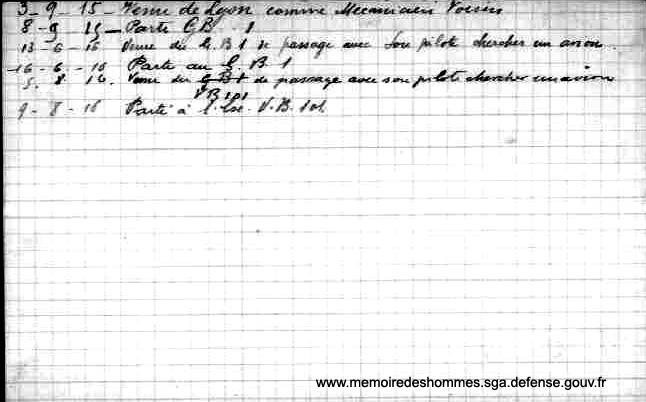 3-9-15- Venu de Lyon comme Mecanicien Voisin
8-9 15- Parti GB. 1
13-6-16 Venu du G.B 1 de passage avec son pilote chercher un avion.
-16-6-16 Parti au G.B 1
5. 8 16. Venu du GB1 de passage avec son pilote chercher un avion
VB101
9-8-16 Parti à l'Esc. V.B. 101
www.memoiredeshommes.sga.defense.gouv.fr